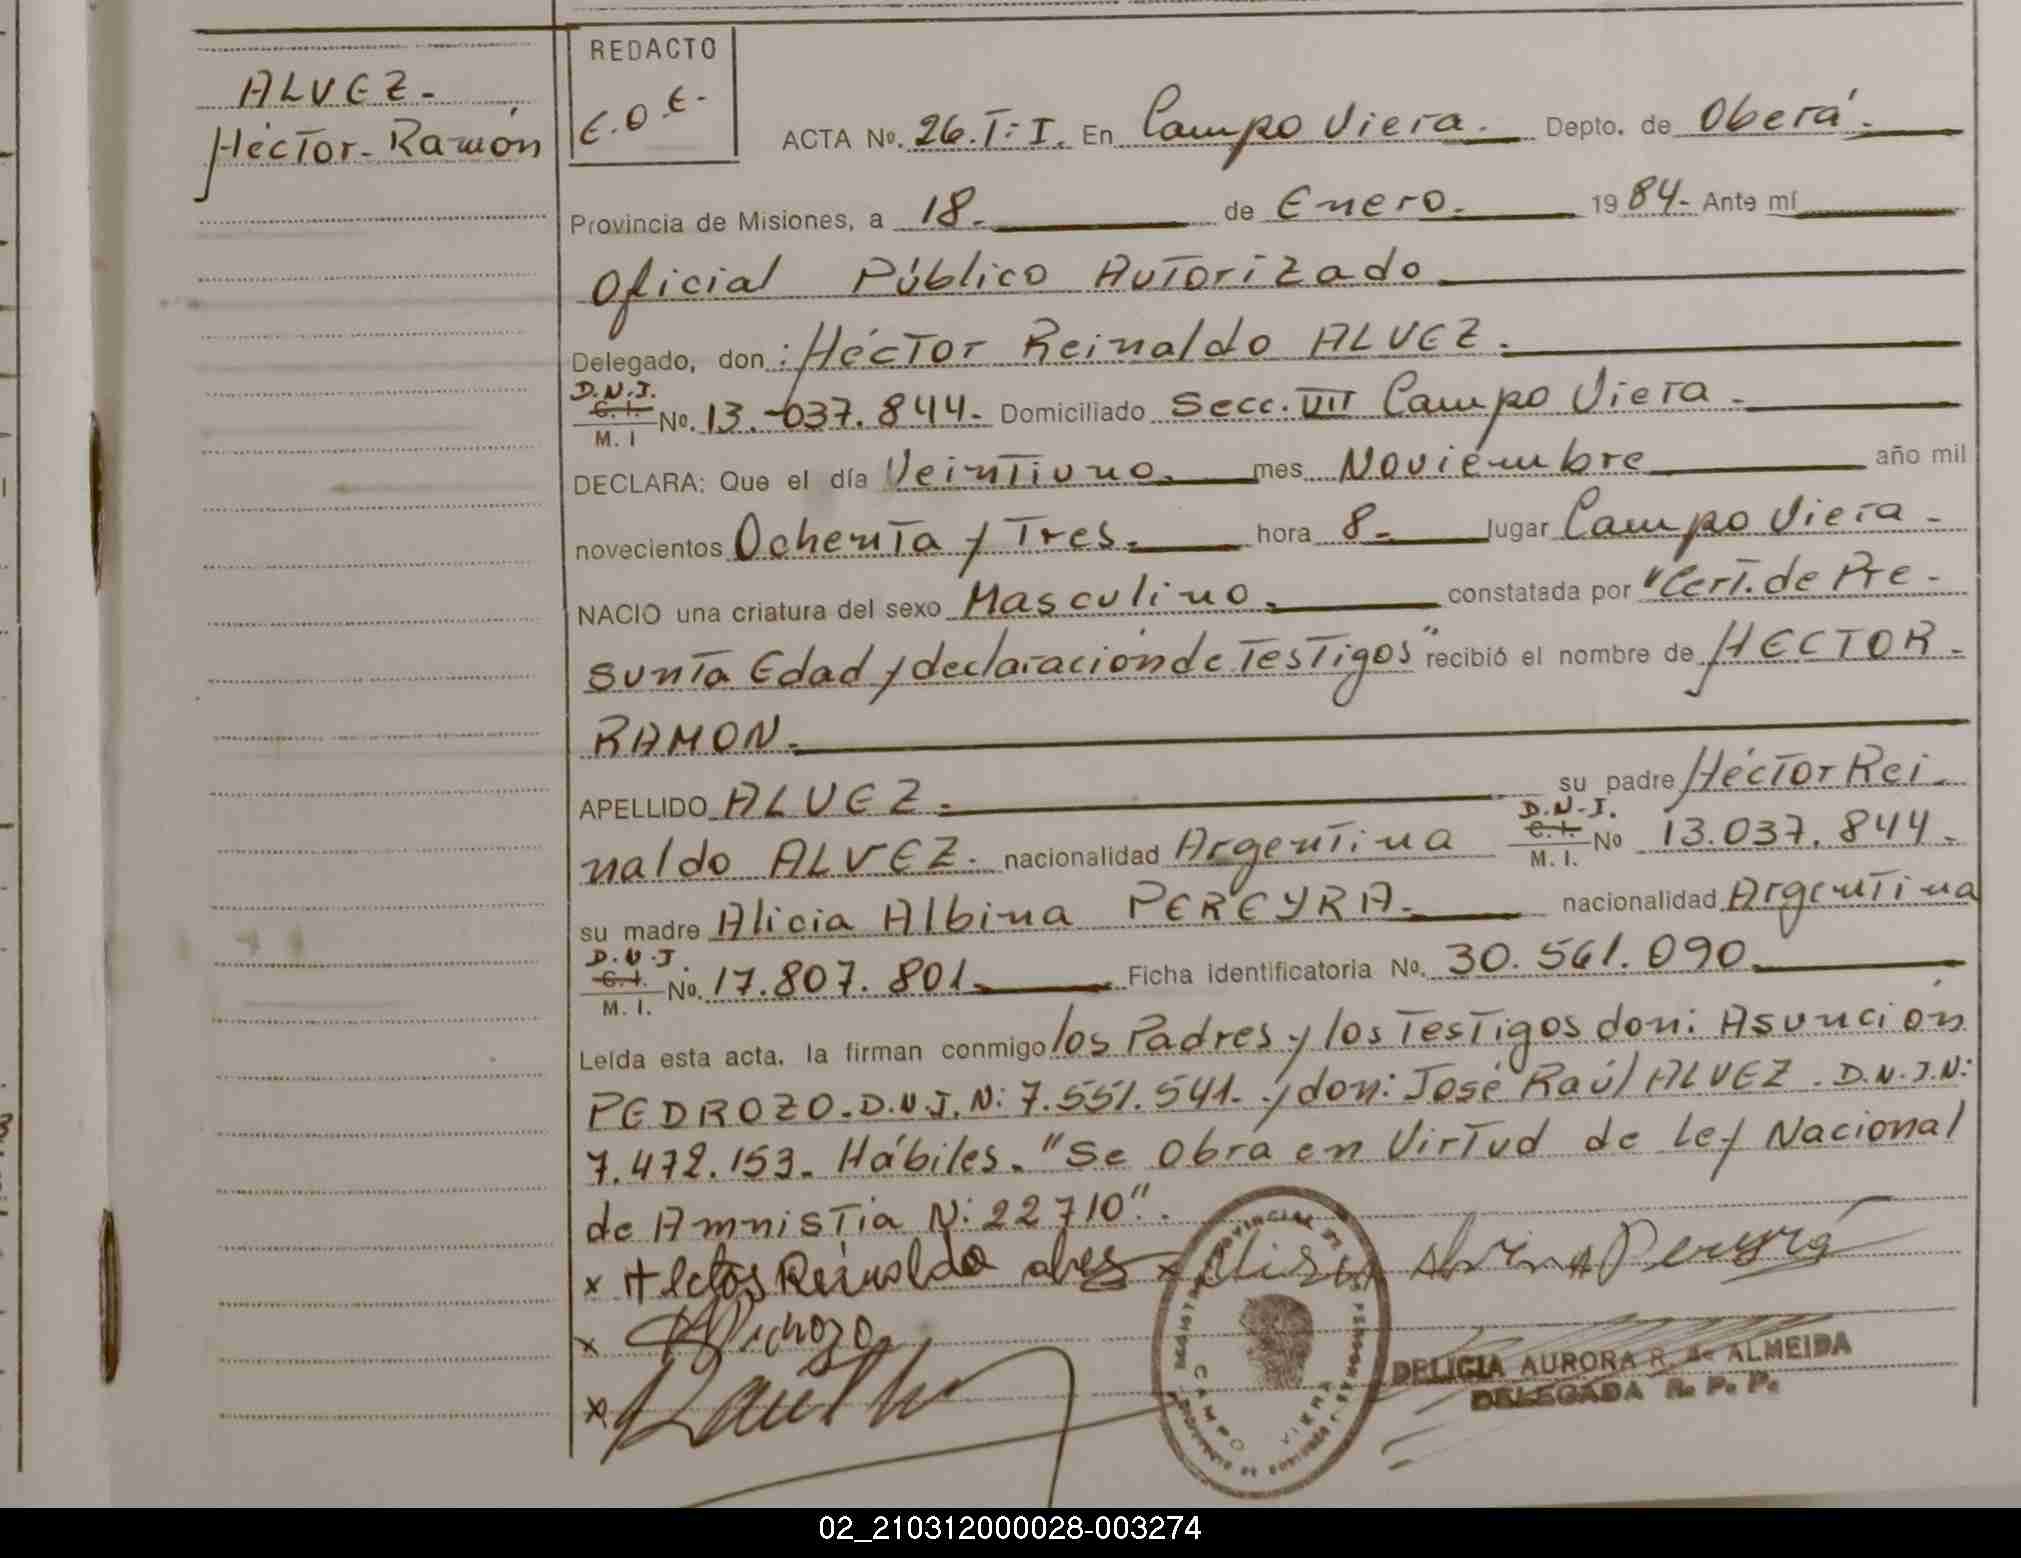 ALVEZ-
Héctor-Ramón
REDACTO
E.O.E-
ACTA No. 26.T:I. En Campo Viera. Depto. de Oberá.
Provincia de Misiones, a 18. de Enero. 1984. Ante mí
Oficial Público Autorizado
Delegado, don: Héctor Reinaldo ALVEZ.
D.N.I.
C.I. No. 13.-037.844. Domiciliado Secc. VII Campo Viera.
M. I
DECLARA: Que el día Veintiuno. mes Noviembre año mil
novecientos Ochenta y Tres. hora 8. lugar Campo Viera.
NACIO una criatura del sexo Masculino. constatada por "Cert. de Pre-
sunta Edad y declaración de Testigos" recibió el nombre de HECTOR-
RAMON.
APELLIDO ALVEZ. su padre Héctor Rei-
D.N.I.
naldo ALVEZ. nacionalidad Argentina C.I. No 13.037.844.
M. I.
su madre Alicia Albina PEREYRA. nacionalidad Argentina
D.N.I.
C.I. No. 17.807.801. Ficha identificatoria No. 30.561.090.
M. I.
Leída esta acta, la firman conmigo los Padres y los Testigos don: Asunción
PEDROZO. D.N.I.N: 7.551.541. y don: José Raúl ALVEZ. D.N.I.N:
7.472.153. Hábiles. "Se Obra en Virtud de Ley Nacional
de Amnistia N: 22710".
x Hector Reinaldo x Pereyra
x
x
CAMPO VIERA
DELICIA AURORA R. de ALMEIDA
DELEGADA R. P. P.
02_210312000028-003274